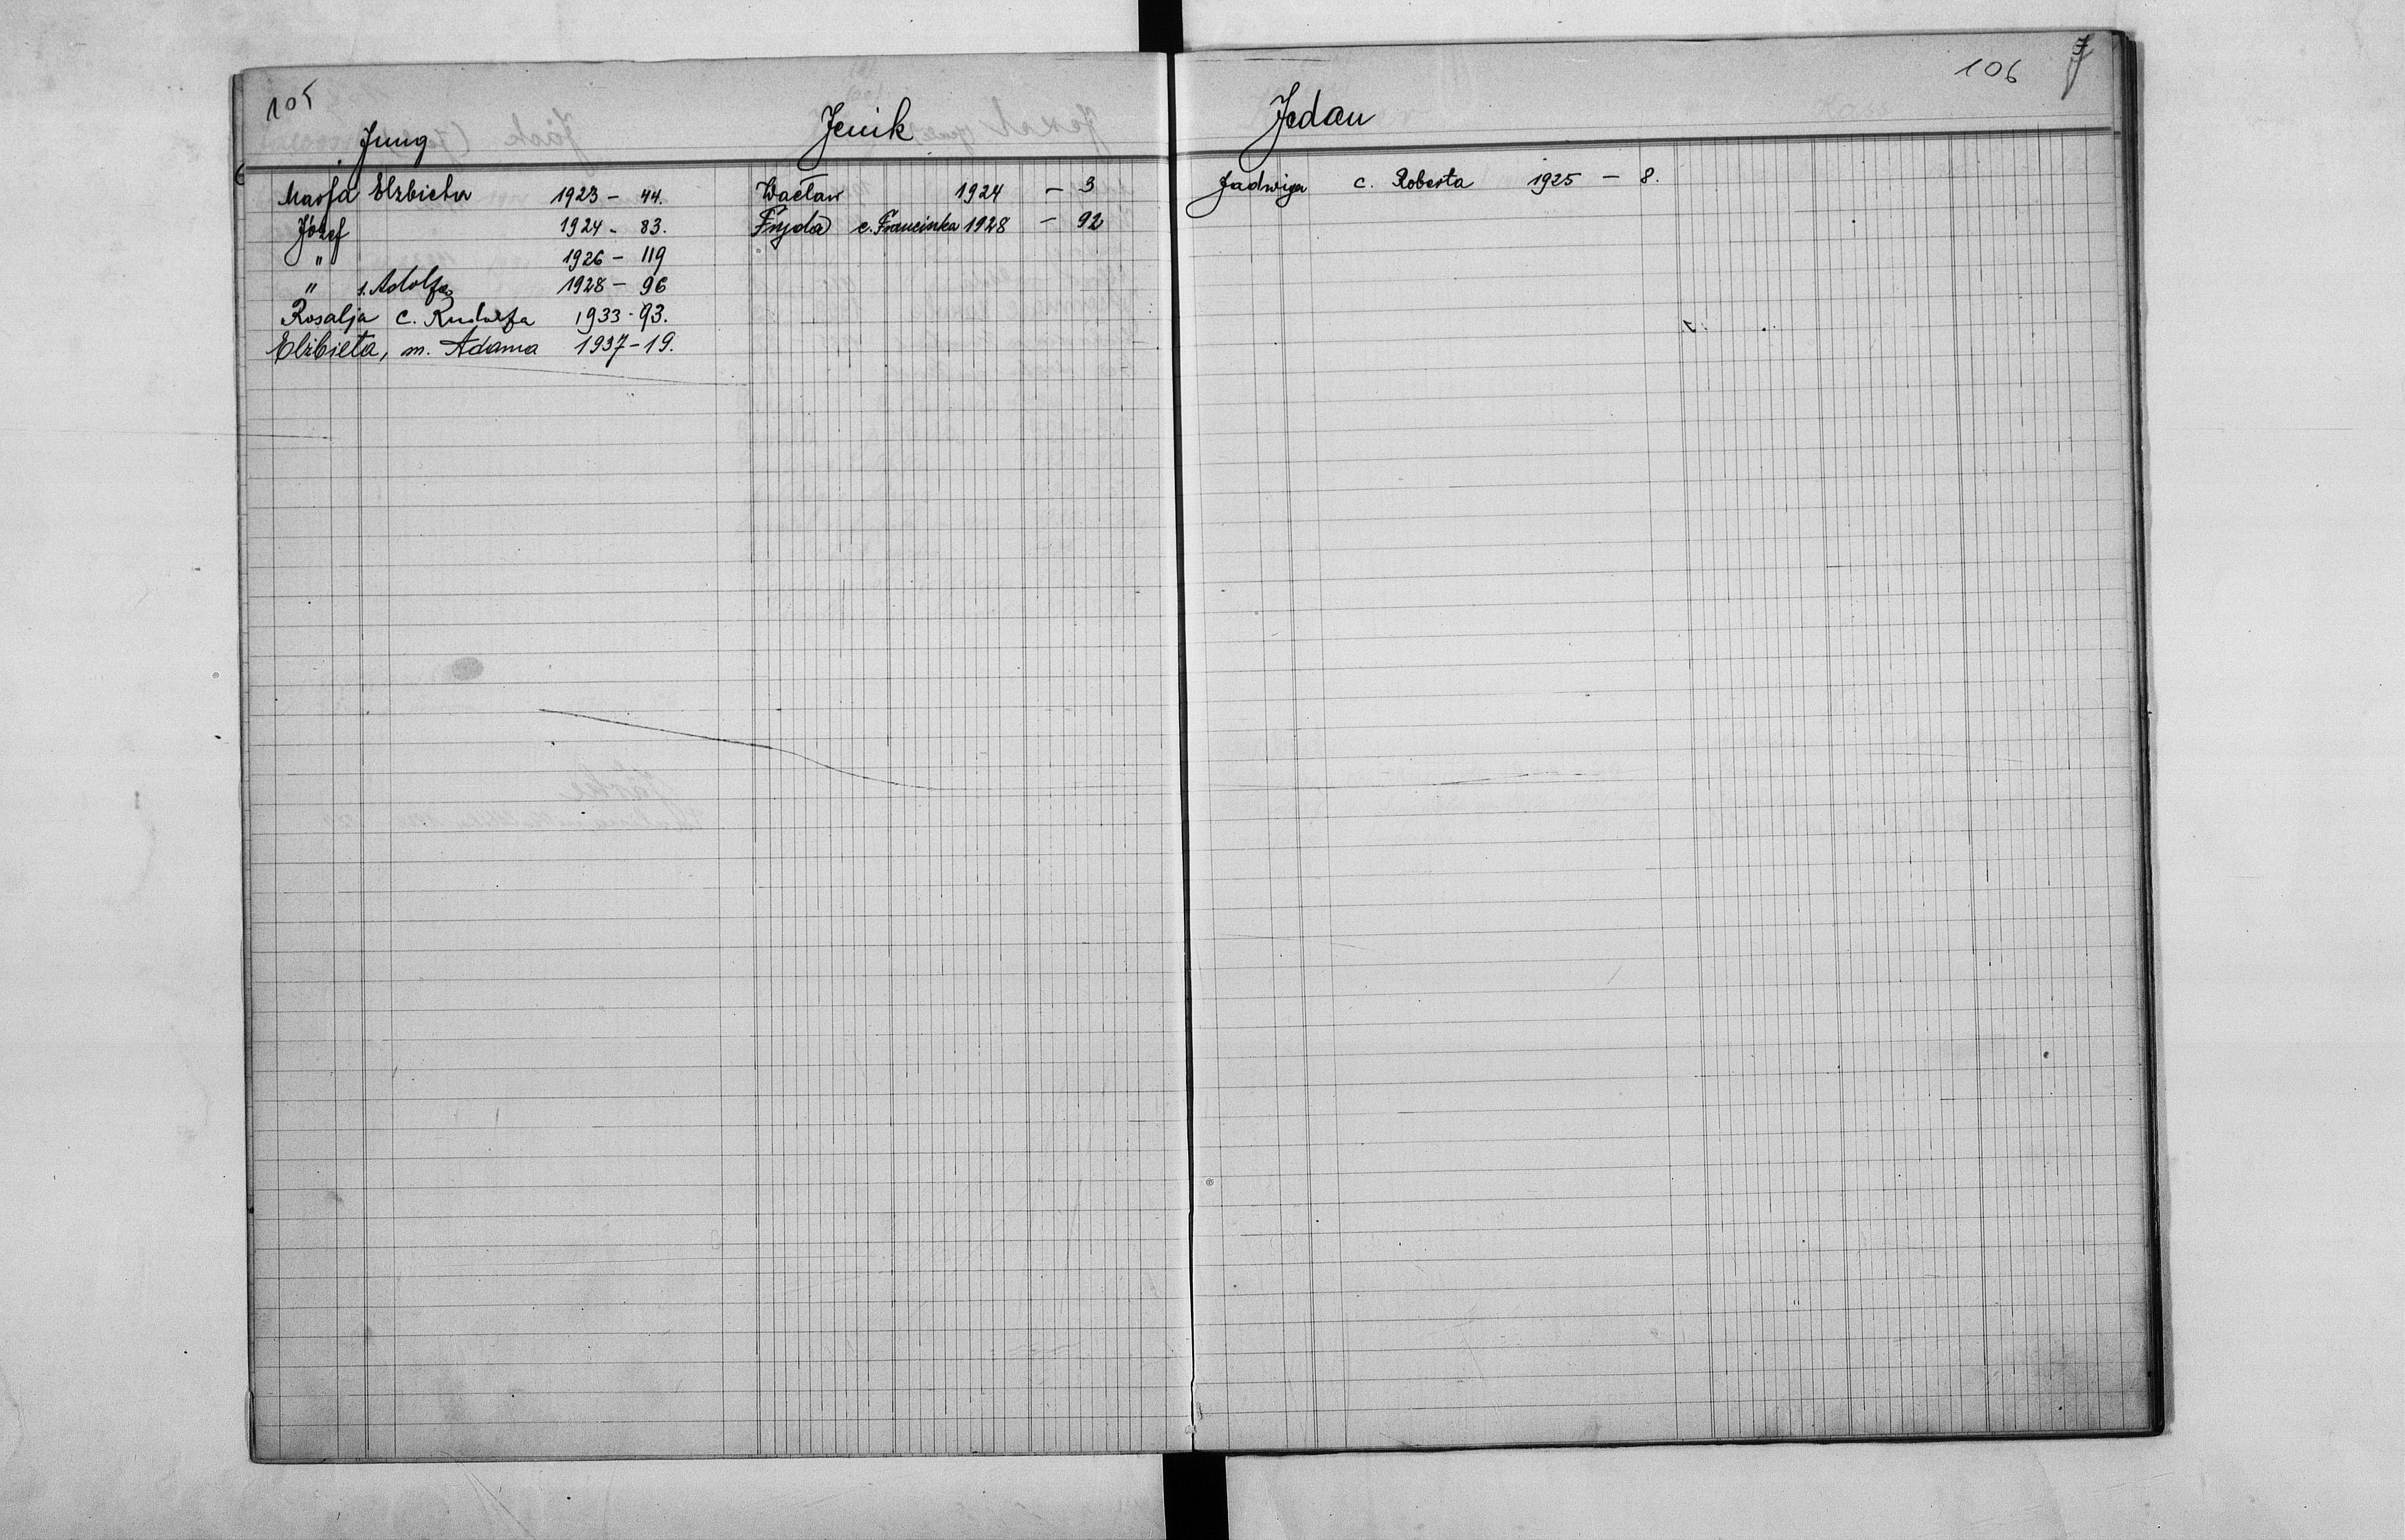 105
Jung
Marja Elżbieta 1923 - 44.
Józef 1924 - 83.
" 1926 - 119
" s. Adolfa 1928 - 96
Rosalja c. Rudolfa 1933 - 93.
Elżbieta, m. Adama 1937 - 19.
Jenik
Wacław 1924 - 3
Fryda c. Franciszka 1928 - 92
106 J
Jedan
Jadwiga c. Roberta 1925 - 8.